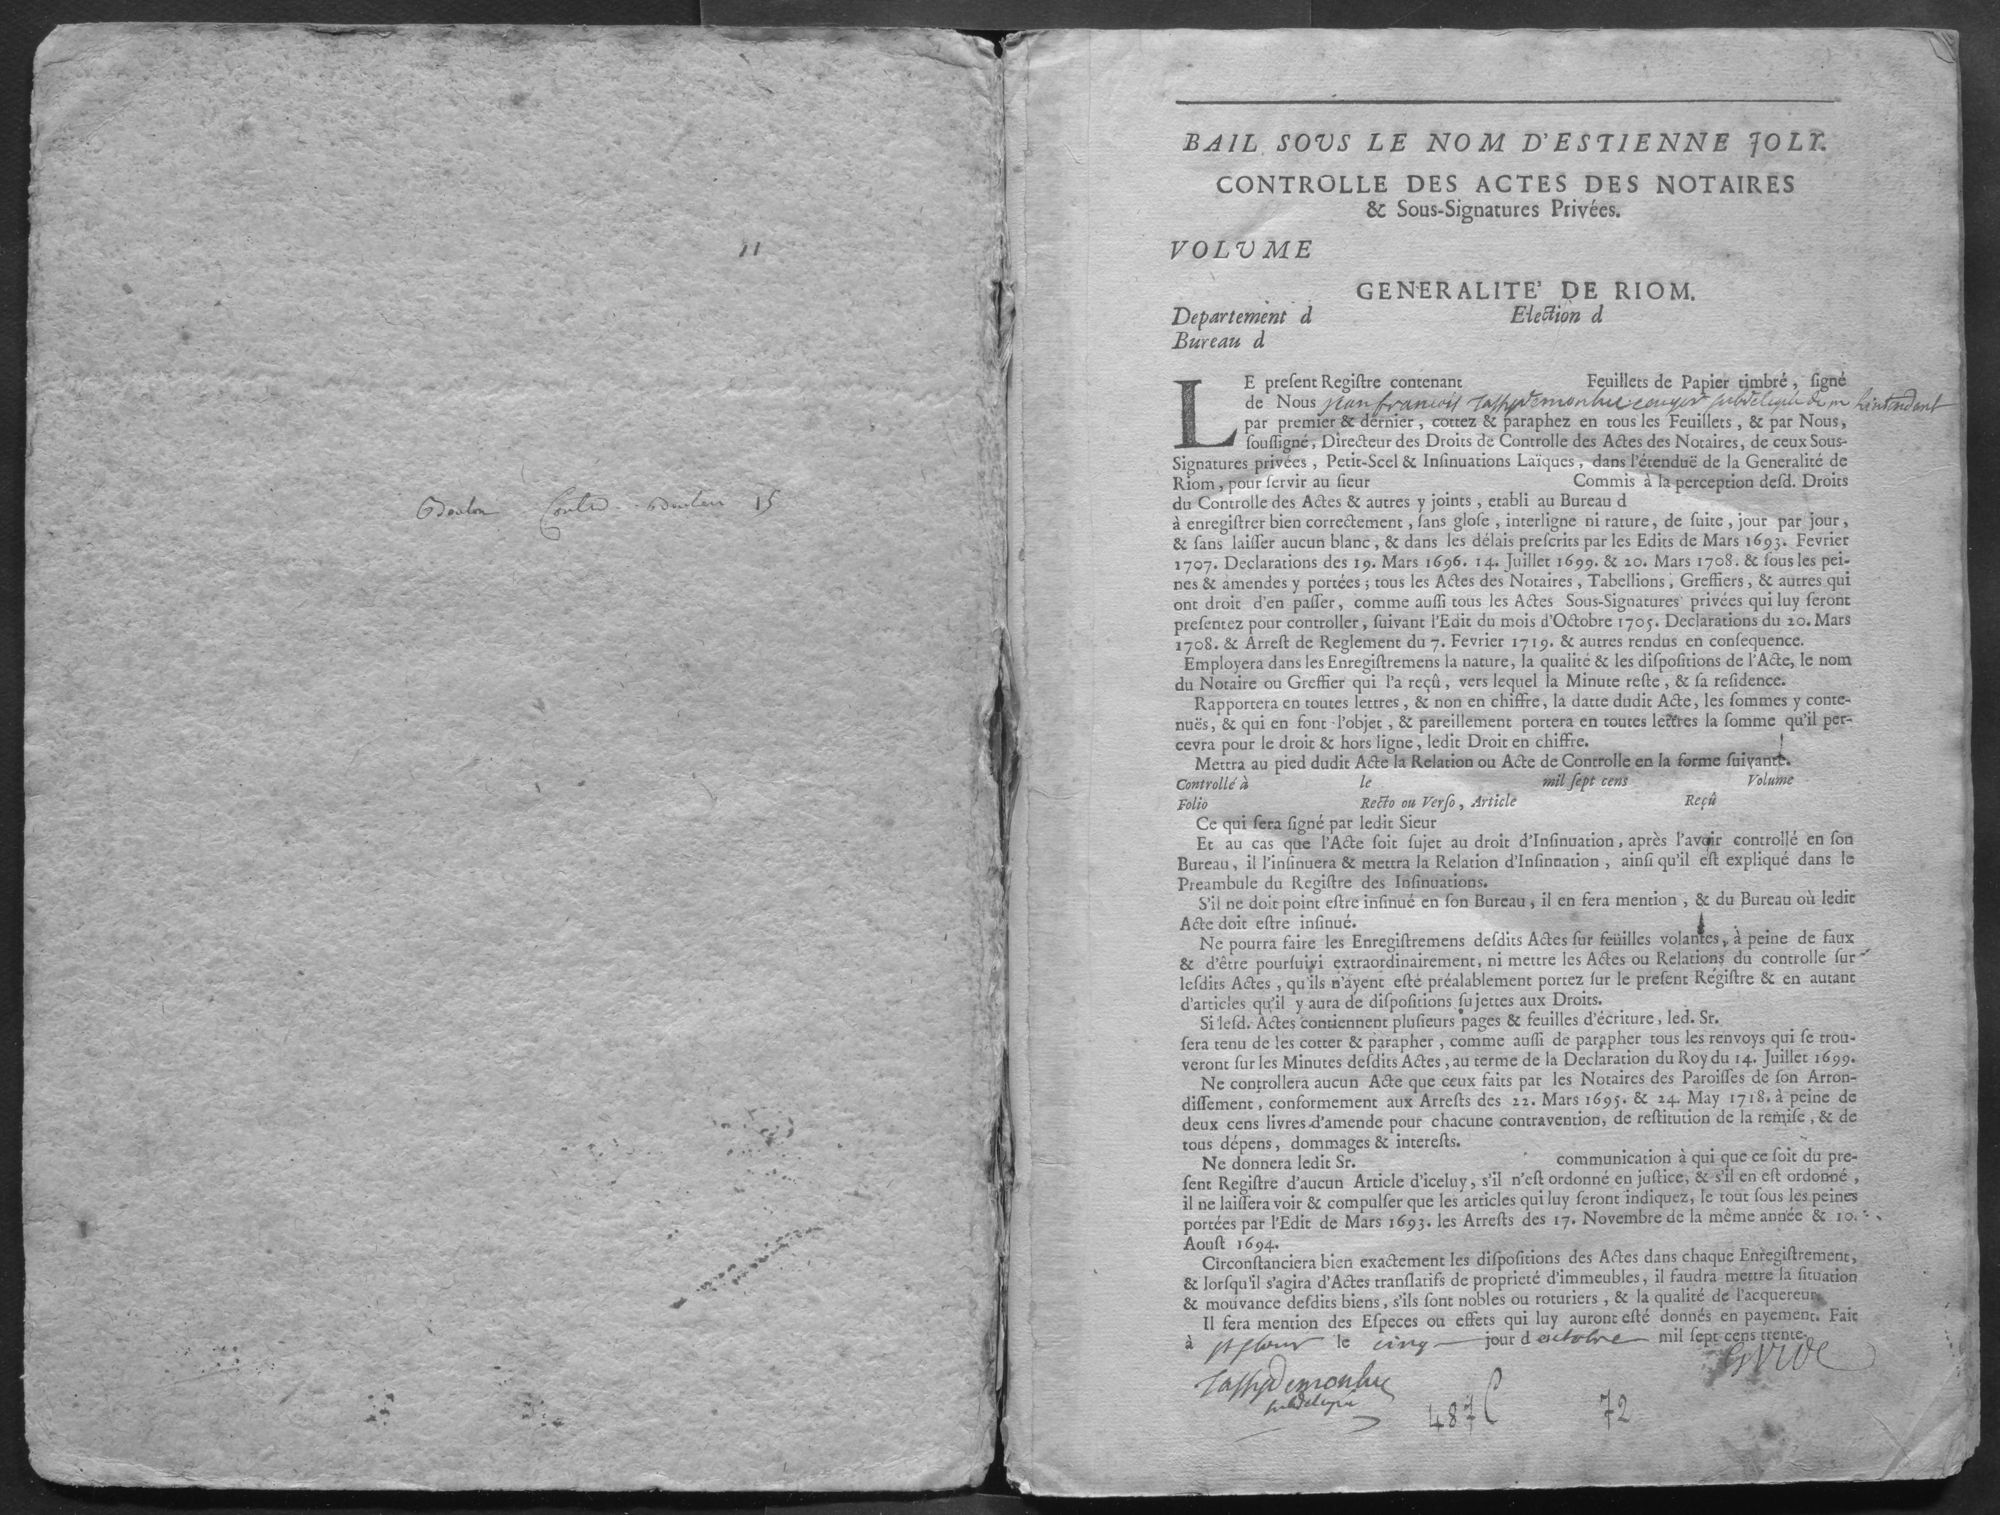 11
15
BAIL SOUS LE NOM D'ESTIENNE JOLY.
CONTROLLE DES ACTES DES NOTAIRES
& Sous-Signatures Privées.
VOLUME
GENERALITE' DE RIOM.
Departement d Election d
Bureau d
LE preſent Regiſtre contenant Feuillets de Papier timbré, ſigné
de Nous jean francois subdelegué de mr Lintendant
par premier & dernier, cottez & paraphez en tous les Feuillets, & par Nous,
ſouſſigné, Directeur des Droits de Controlle des Actes des Notaires, de ceux Sous-
Signatures privées, Petit-Scel & Inſinuations Laïques, dans l'étenduë de la Generalité de
Riom, pour ſervir au ſieur Commis à la perception deſd. Droits
du Controlle des Actes & autres y joints, etabli au Bureau d
à enregiſtrer bien correctement, ſans gloſe, interligne ni rature, de ſuite, jour par jour,
& ſans laiſſer aucun blanc, & dans les délais preſcrits par les Edits de Mars 1693. Fevrier
1707. Declarations des 19. Mars 1696. 14. Juillet 1699. & 20. Mars 1708. & ſous les pei-
nes & amendes y portées; tous les Actes des Notaires, Tabellions, Greffiers, & autres qui
ont droit d'en paſſer, comme auſſi tous les Actes Sous-Signatures privées qui luy ſeront
preſentez pour controller, ſuivant l'Edit du mois d'Octobre 1705. Declarations du 20. Mars
1708. & Arreſt de Reglement du 7. Fevrier 1719. & autres rendus en conſequence.
Employera dans les Enregiſtremens la nature, la qualité & les diſpoſitions de l'Acte, le nom
du Notaire ou Greffier qui l'a reçû, vers lequel la Minute reſte, & ſa reſidence.
Rapportera en toutes lettres, & non en chiffre, la datte dudit Acte, les ſommes y conte-
nuës, & qui en font l'objet, & pareillement portera en toutes lettres la ſomme qu'il per-
cevra pour le droit & hors ligne, ledit Droit en chiffre.
Mettra au pied dudit Acte la Relation ou Acte de Controlle en la forme ſuivante.
Controllé à le mil ſept cens Volume
Folio Recto ou Verſo, Article Reçû
Ce qui ſera ſigné par ledit Sieur
Et au cas que l'Acte ſoit ſujet au droit d'Inſinuation, après l'avoir controllé en ſon
Bureau, il l'inſinuera & mettra la Relation d'Inſinuation, ainſi qu'il eſt expliqué dans le
Preambule du Regiſtre des Inſinuations.
S'il ne doit point eſtre inſinué en ſon Bureau, il en fera mention, & du Bureau où ledit
Acte doit eſtre inſinué.
Ne pourra faire les Enregiſtremens deſdits Actes ſur feüilles volantes, à peine de faux
& d'être pourſuivi extraordinairement, ni mettre les Actes ou Relations du controlle ſur
leſdits Actes, qu'ils n'ayent eſté préalablement portez ſur le preſent Regiſtre & en autant
d'articles qu'il y aura de diſpoſitions ſujettes aux Droits.
Si leſd. Actes contiennent pluſieurs pages & feuilles d'écriture, led. Sr.
ſera tenu de les cotter & parapher, comme auſſi de parapher tous les renvoys qui ſe trou-
veront ſur les Minutes deſdits Actes, au terme de la Declaration du Roy du 14. Juillet 1699.
Ne controllera aucun Acte que ceux faits par les Notaires des Paroiſſes de ſon Arron-
diſſement, conformement aux Arreſts des 22. Mars 1695. & 24. May 1718. à peine de
deux cens livres d'amende pour chacune contravention, de reſtitution de la remiſe, & de
tous dépens, dommages & intereſts.
Ne donnera ledit Sr. communication à qui que ce ſoit du pre-
ſent Regiſtre d'aucun Article d'iceluy, s'il n'eſt ordonné en juſtice, & s'il en eſt ordonné,
il ne laiſſera voir & compulſer que les articles qui luy ſeront indiquez, le tout ſous les peines
portées par l'Edit de Mars 1693. les Arreſts des 17. Novembre de la même année & 10.
Aouſt 1694.
Circonſtanciera bien exactement les diſpoſitions des Actes dans chaque Enregiſtrement,
& lorſqu'il s'agira d'Actes tranſlatifs de proprieté d'immeubles, il faudra mettre la ſituation
& mouvance deſdits biens, s'ils ſont nobles ou roturiers, & la qualité de l'acquereur.
Il ſera mention des Eſpeces ou effets qui luy auront eſté donnés en payement. Fait
à st flour le cinq jour d octobre mil ſept cens trente
subdelegué
487 72